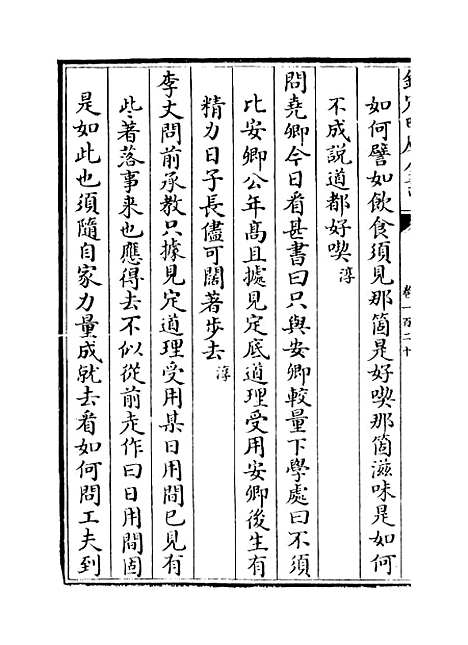 欽定四庫全書
卷一百二十
如何譬如飲食須見那箇是好喫那箇滋味是如何
不成説道都好喫 淳
問堯卿今日看甚書曰只與安卿較量下學處曰不須
比安卿公年髙且據見定底道理受用安卿後生有
精力日子長儘可闊著步去 淳
李丈問前承教只據見定道理受用某日用間已見有
些著落事来也應得去不似從前走作曰日用間固
是如此也須隨自家力量成就去看如何問工夫到